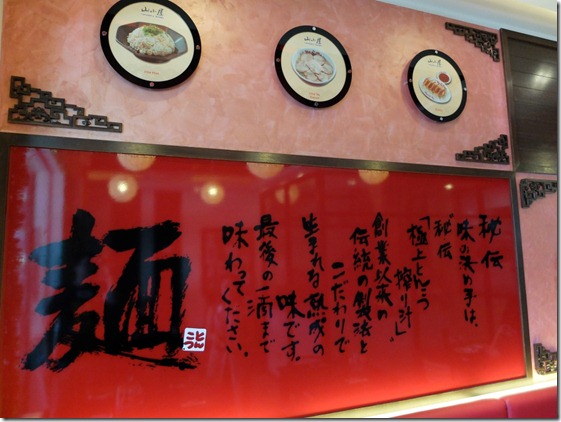 山小屋
山小屋
山小屋
秘伝
味の決め手は、
秘伝
「極上とんこつ
搾り汁」、
創業以来の
伝統の製法と
こだわりで
生まれた熟成の
味です。
最後の一滴まで
味わってください。
麺
とん
こつ